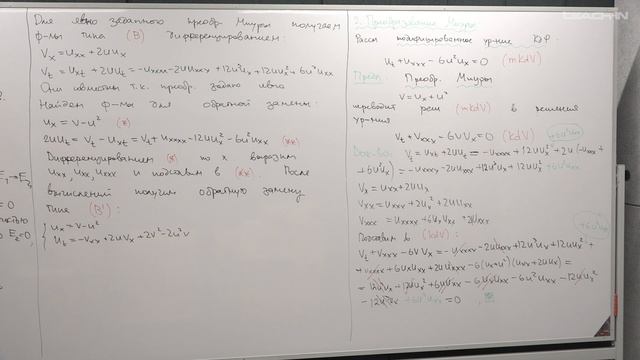 Для явно заданного преобр. Миуры получаем
ф-лы типа (B) дифференцированием:
V_x = u_xx + 2uu_x
V_t = u_xt + 2uu_t = -u_xxxx - 2uu_xxx + 12u²u_x + 12uu_x² + 6u²u_xx
Они совместны т.к. преобр. задано явно
Найдем ф-лы для обратной замены:
u_x = v - u² (*)
2uu_t = V_t - u_xt = V_t + u_xxxx - 12uu_x² - 6u²u_xx (**)
Дифференцированием (*) по x выразим
u_xx, u_xxx, u_xxxx и подставим в (**). После
вычислений получим обратную замену
типа (B'):
u_x = v - u²
u_t = -v_xx + 2uv_x + 2v² - 2u²v
E₂=0,
TEACH-IN
2. Преобразование Миуры
Рассм модифицированное ур-ние КдФ
u_t + u_xxx - 6u²u_x = 0 (mKdV)
Предл. Преобр. Миуры
v = u_x + u²
переводит реш (mKdV) в решения
ур-ния
V_t + V_xxx - 6VV_x = 0 (KdV)
+6u²u_xx
Док-во: V_t = u_xt + 2uu_t = -u_xxxx + 12uu_x² + 2u(-u_xxx +
+ 6u²u_x) = -u_xxxx - 2uu_xxx + 12u³u_x + 12uu_x² + 6u²u_xx
V_x = u_xx + 2uu_x
V_xx = u_xxx + 2u_x² + 2uu_xx
V_xxx = u_xxxx + 6u_xu_xx + 2uu_xxx
+6u²u_xx
Подставим в (KdV):
V_t + V_xxx - 6VV_x = -u_xxxx - 2uu_xxx + 12u³u_x + 12uu_x² +
+ u_xxxx + 6u_xu_xx + 2uu_xxx - 6(u_x + u²)(u_xx + 2uu_x) =
+6u²u_xx = 0